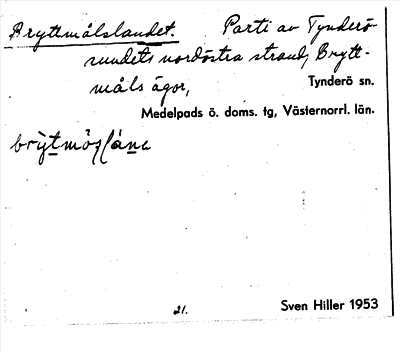 Bryttmålslandet. Parti av Tynderö-
sundets nordöstra strand, Brytt-
måls ägor, Tynderö sn.
Medelpads ö. doms. tg, Västernorrl. län.
21. Sven Hiller 1953